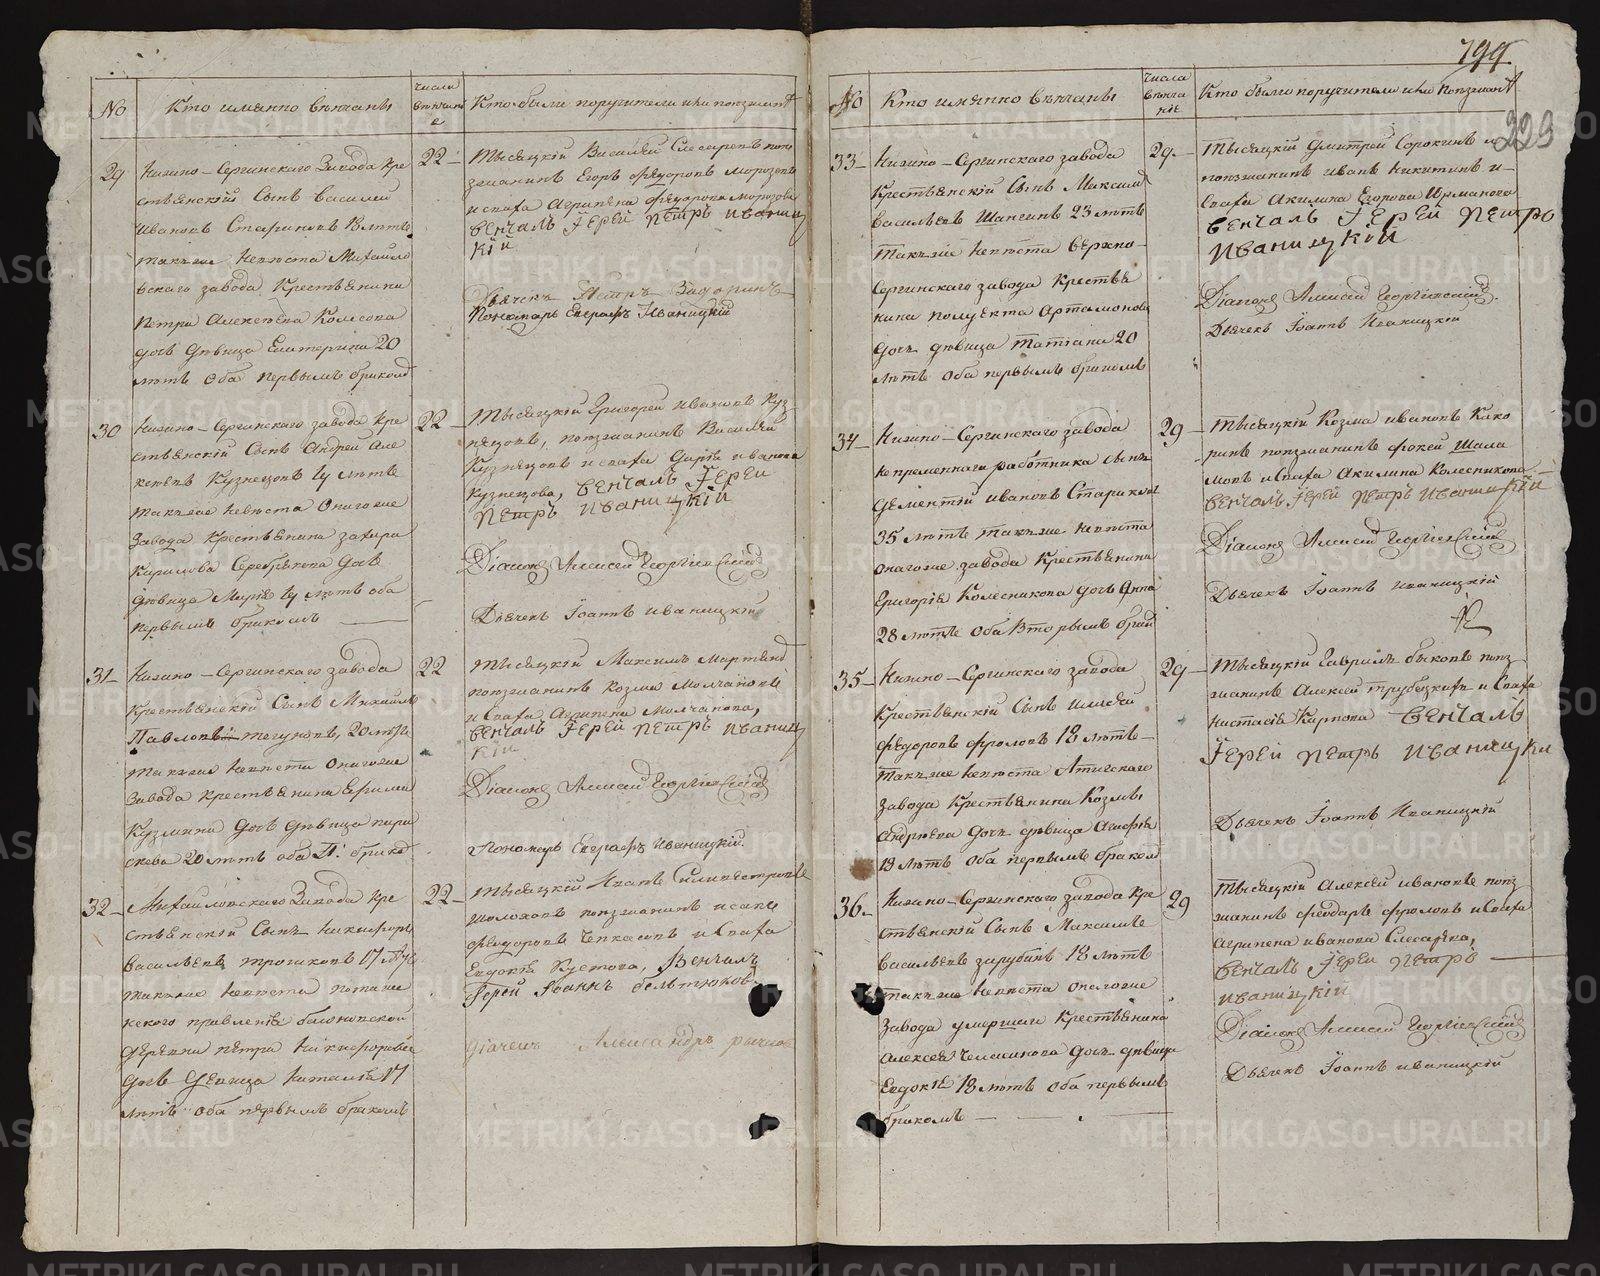 799.
223
№
Кто имянно венчаны
числа венчание
Кто были поручители или поезжант
29
Нижно-Сергинскаго Завода кре
ственскiй Сынъ Василей
Ивановъ Стариковъ
такъже невеста Михайло
вскаго завода Крестьянина
Петра Алексеева Колесова
дочь девица Екатерина 20
летъ оба первымъ бракомъ
22
Тысяцкiй Василей Слесаревъ пое
зжанинъ Егоръ Федоровъ Морозовъ
и сваха Агрипена Федорова Морозова
венчалъ Iерей Петръ Иваниц
кiй
Дьячекъ Петръ Задоринъ
Пономарь Евграфъ Iваницкiй
30
Нижно-Сергинскаго завода кре
ственскiй Сынъ Андрей Але
ксеевъ Кузнецовъ 19 летъ
такъже невеста Онагоже
Завода крестьянина Захара
Карпова Серебрякова дочь
девица Марiя 19 летъ оба
первымъ бракомъ
22
Тысяцкiй Григорей Ивановъ Куз
нецовъ, поезжанинъ Василей
Кузнецовъ и сваха Дарiя Иванова
Кузнецова, венчалъ Iерей
Петръ Иваницкiй
Дiаконъ Алексей Георгiевскiй
Дьячекъ Iоаннъ Иваницкiй
31
Нижно-Сергинскаго завода
Крестьянскiй Сынъ Михаилъ
Павловъ тегуновъ, 20 летъ
такъже невеста Онагоже
Завода крестьянина Ефима
Кузмина дочь девица пара
скева 20 летъ оба П: брако
22
Тысяцкiй Максимъ Мартянд
поезжанинъ Козма Молчановъ
и Сваха Агрипена Молчанова,
венчалъ Iерей Петръ Иваниц
кiй
Дiаконъ Алексей Георгiевскiй
Пономарь Евграфъ Иваницкiй.
32
Михайловскаго Завода кре
ственскiй Сынъ Никифоръ
Васильевъ трошковъ 17 летъ
такъже невеста
кскаго правленiя
деревни Петра Никифорова
дочь Девица Наталiя 17
летъ оба первымъ бракомъ
22
Тысяцкiй Иванъ Силивестровъ
Шолоховъ поезжанинъ Исакъ
Федоровъ Чеkасовъ и Сваха
Евдокiя Кустова, Венчалъ
Iерей Iоаннъ Бельтюковъ
дiачекъ Александръ рычков
№
Кто имянно венчаны
числа венчанiе
Кто были поручители или поезжант
33
Нижно-Сергинскаго завода
Крестьянскiй Сынъ Максимъ
Васильевъ Шангинъ 23 летъ
такъже невеста Верхно-
Сергинскаго завода крестья
нина Полуекта Артамонова
дочь девица Татiана 20
летъ оба первымъ бракомъ
29
Тысяцкiй Дмитрей Сорокинъ и
поезжанинъ Иванъ Никитинъ и
сваха Акилина Егорова Шрманова
венчалъ Iерей Петръ
Иваницкiй
Дiаконъ Алексей Георгiевскiй.
Дьячекъ Iоаннъ Иваницкiй
34
Нижно-Сергинскаго завода
непременнаго работника сынъ
Дементiй Ивановъ Стариковъ
35 летъ такъже невеста
онагоже завода Крестьянина
Григорiя Колесникова дочь Анна
28 летъ оба Вторымъ брако
29
Тысяцкiй Козма Ивановъ Како
ринъ поезжанинъ Фокей Шала
мовъ и Сваха Акилина Колесникова
венчалъ Iерей Петръ Иваницкiй
Дiаконъ Алексей Георгiевскiй
Дьячекъ Iоаннъ Иваницкiй
35
Нижно-Сергинскаго завода
Крестьянскiй Сынъ
Федоровъ Фроловъ 18 летъ
такъже невеста Атигскаго
завода Крестьянина Козмы
Андреева дочь девица Агафiя
18 летъ оба первымъ бракомъ
29
Тысяцкiй Гаврилъ Быковъ поез
жанинъ Алексей трубецковъ и Сваха
Настасiя Карпова венчалъ
Iерей Петръ Иваницки
Дьячекъ Iоаннъ Иваницкiй
36
Нижно-Сергинскаго завода Кре
ственскiй Сынъ Максимъ
Васильевъ Зарубинъ 18 летъ
такъже невеста оногоже
Завода умершаго Крестьянина
Алексея Челышкова дочь девица
Евдокiя 18 летъ оба первымъ
бракомъ
29
Тысяцкiй Алексей Ивановъ поез
жанинъ Феодаръ Фроловъ и Сваха
Агрипена Иванова Слесарева,
венчалъ Iерей Петръ
Иваницкiй
Дiаконъ Алексей Георгiевскiй
Дьячекъ Iоаннъ Иваницкiй
METRIKI.GASO-URAL.RU